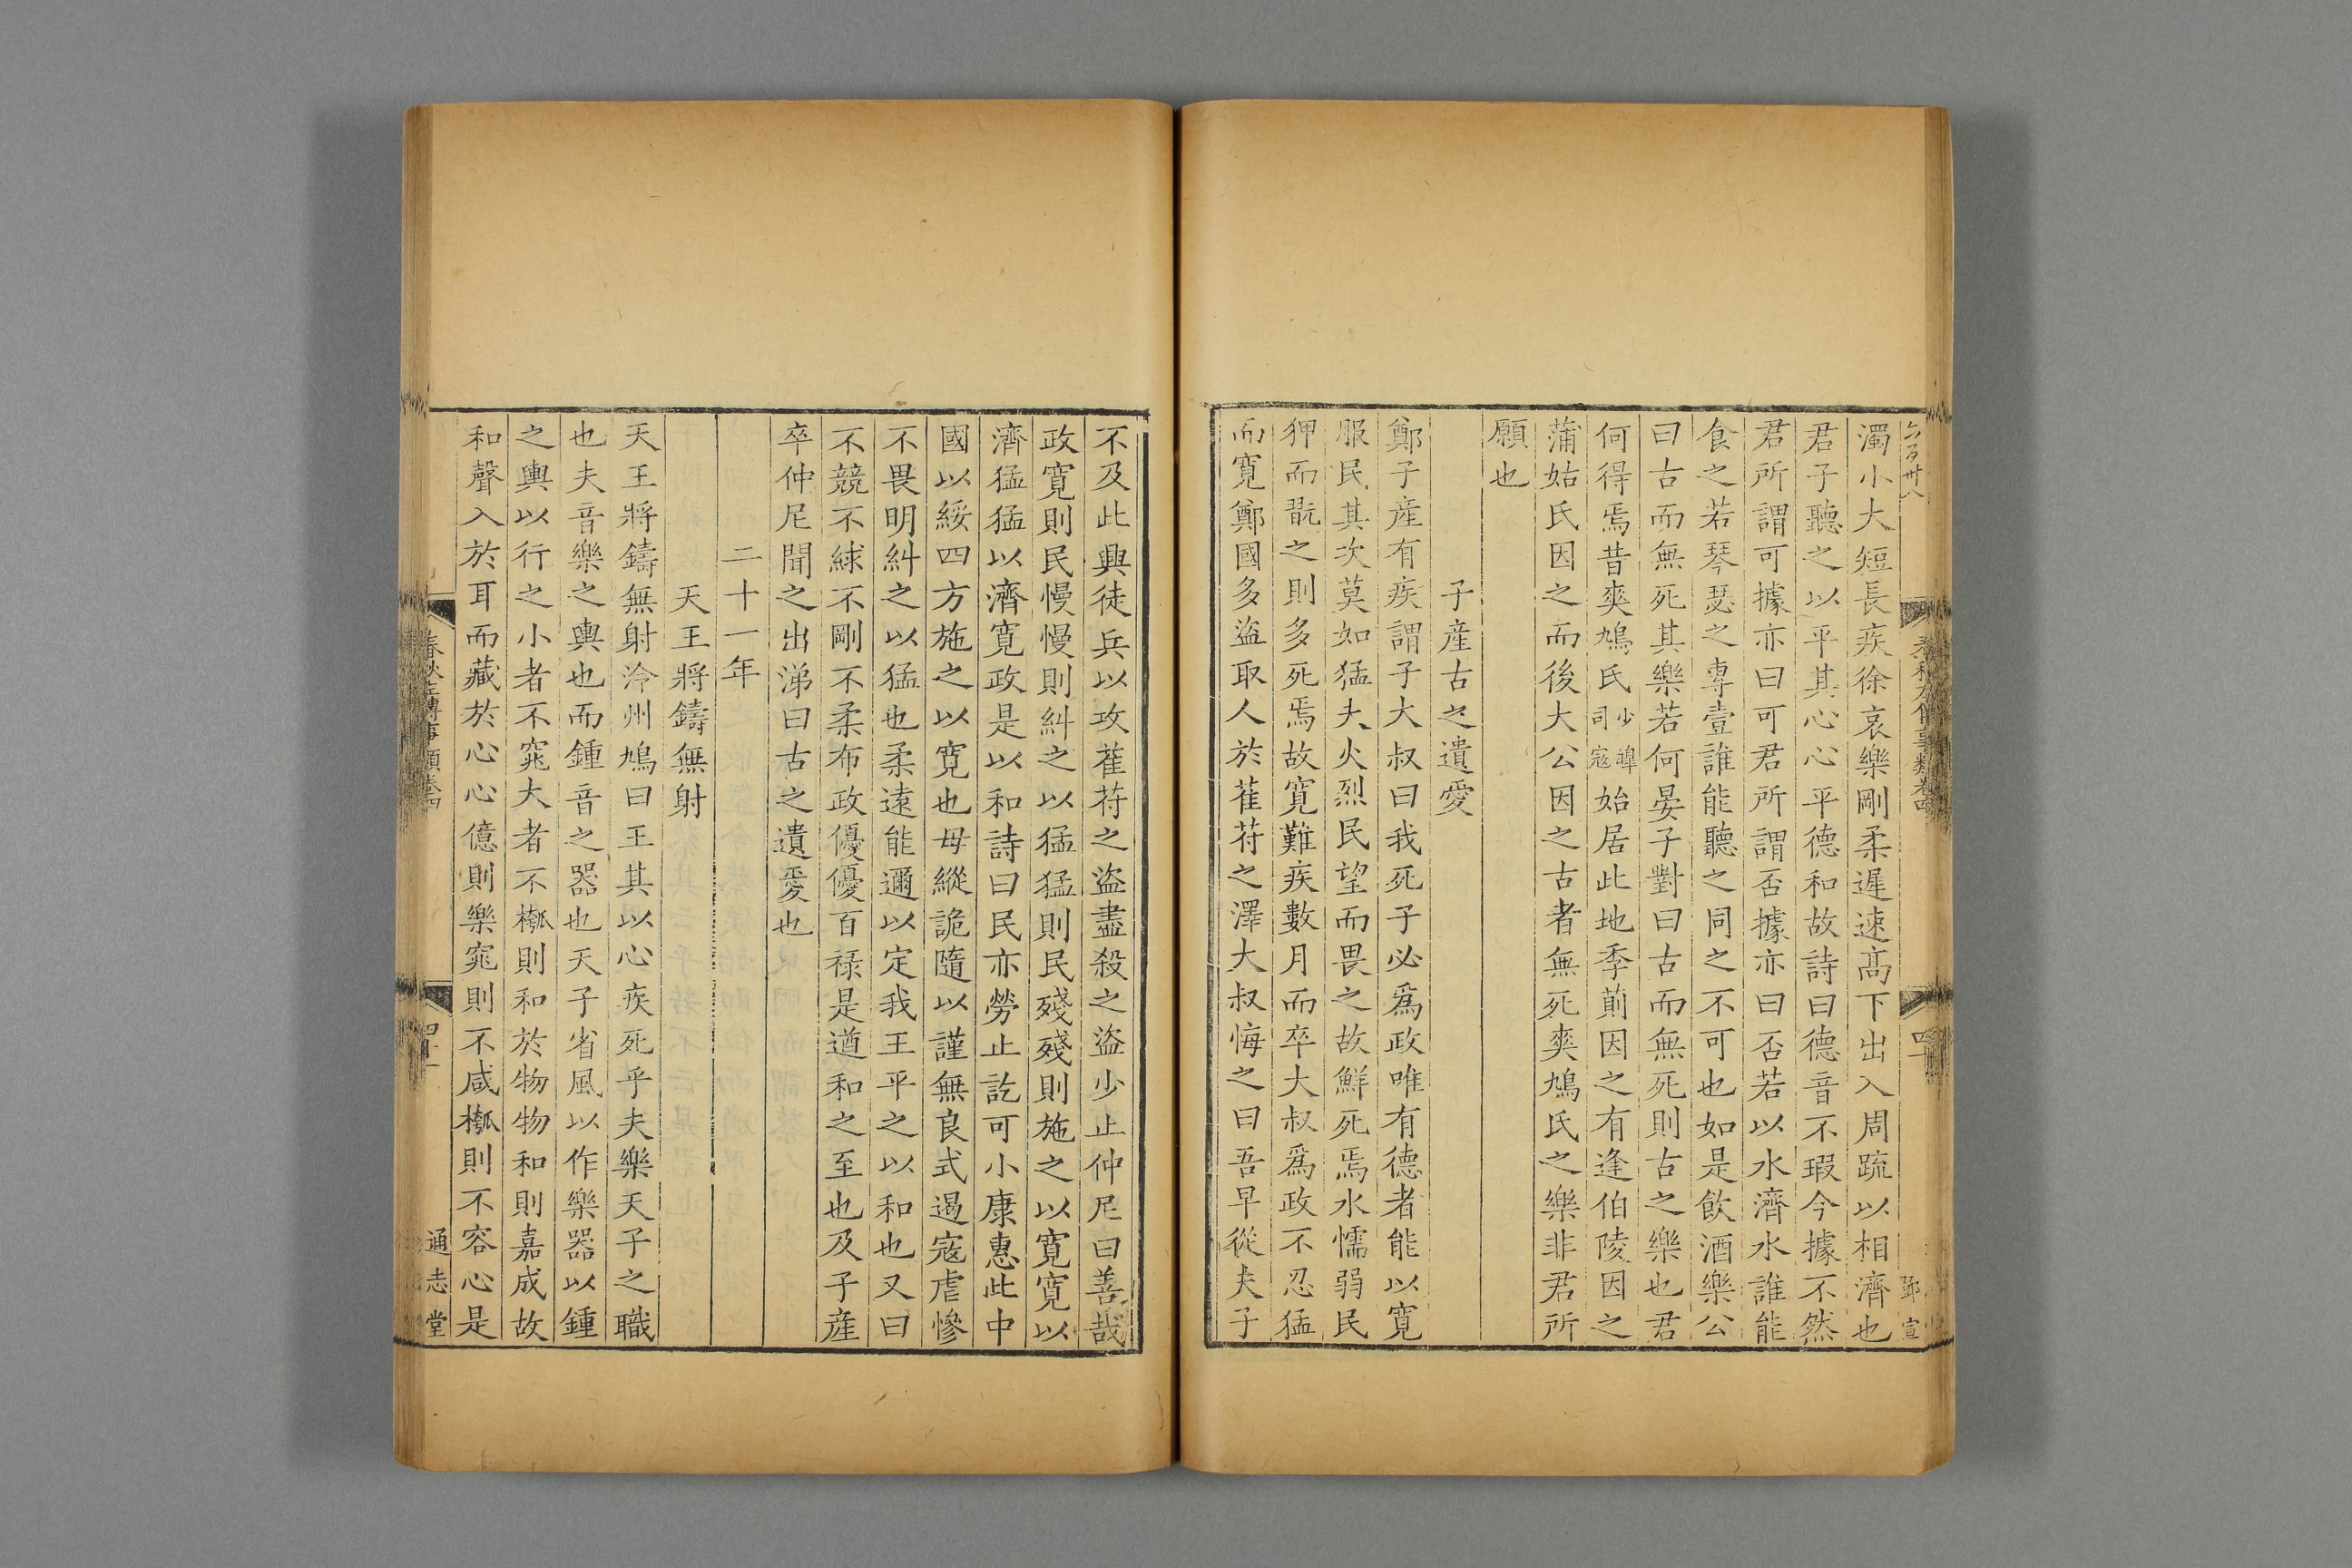 濁小大短長疾徐哀樂剛柔遲速髙下出入周疏以相濟也
君子聽之以平其心心平德和故詩曰德音不瑕今據不然
君所謂可據亦曰可君所謂否據亦曰否若以水濟水誰能
食之若琴瑟之專壹誰能聽之同之不可也如是飲酒樂公
曰古而無死其樂若何晏子對曰古而無死則古之樂也君
何得焉昔爽鳩氏少皞司寇始居此地季萴因之有逢伯陵因之
蒲姑氏因之而後大公因之古者無死爽鳩氏之樂非君所
願也
子産古之遺愛
鄭子産有疾謂子大叔曰我死子必爲政唯有德者能以寬
服民其次莫如猛夫火烈民望而畏之故鮮死焉水懦弱民
狎而翫之則多死焉故寬難疾數月而卒大叔爲政不忍猛
而寬鄭國多盜取人於萑苻之澤大叔悔之曰吾早從夫子
不及此興徒兵以攻萑苻之盜盡殺之盜少止仲尼曰善哉
政寬則民慢慢則糾之以猛猛則民殘殘則施之以寬寬以
濟猛猛以濟寬政是以和詩曰民亦勞止訖可小康惠此中
國以綏四方施之以寬也毋縱詭隨以謹無良式遏寇虐慘
不畏明糾之以猛也柔遠能邇以定我王平之以和也又曰
不競不絿不剛不柔布政優優百祿是遒和之至也及子産
卒仲尼聞之出涕曰古之遺愛也
二十一年
天王將鑄無射
天王將鑄無射泠州鳩曰王其以心疾死乎夫樂天子之職
也夫音樂之輿也而鍾音之器也天子省風以作樂器以鍾
之輿以行之小者不窕大者不槬則和於物物和則嘉成故
和聲入於耳而藏於心心億則樂窕則不咸槬則不容心是
春秋左傳事類卷四
通志堂